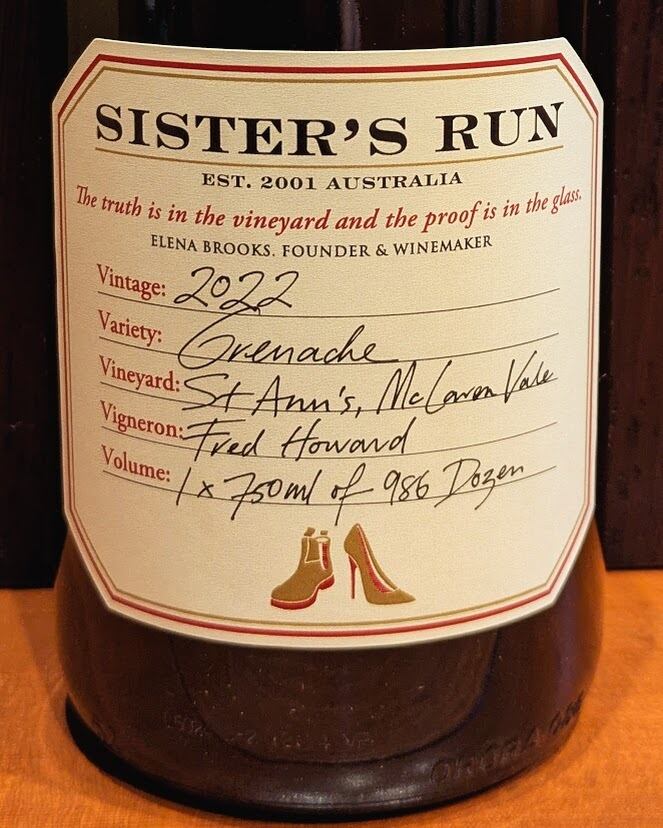 SISTER'S RUN
EST. 2001 AUSTRALIA
The truth is in the vineyard and the proof is in the glass.
ELENA BROOKS. FOUNDER & WINEMAKER
Vintage: 2022
Variety: Grenache
Vineyard: St Ann's, McLaren Vale
Vigneron: Fred Howard
Volume: 1 x 750ml of 986 Dozen